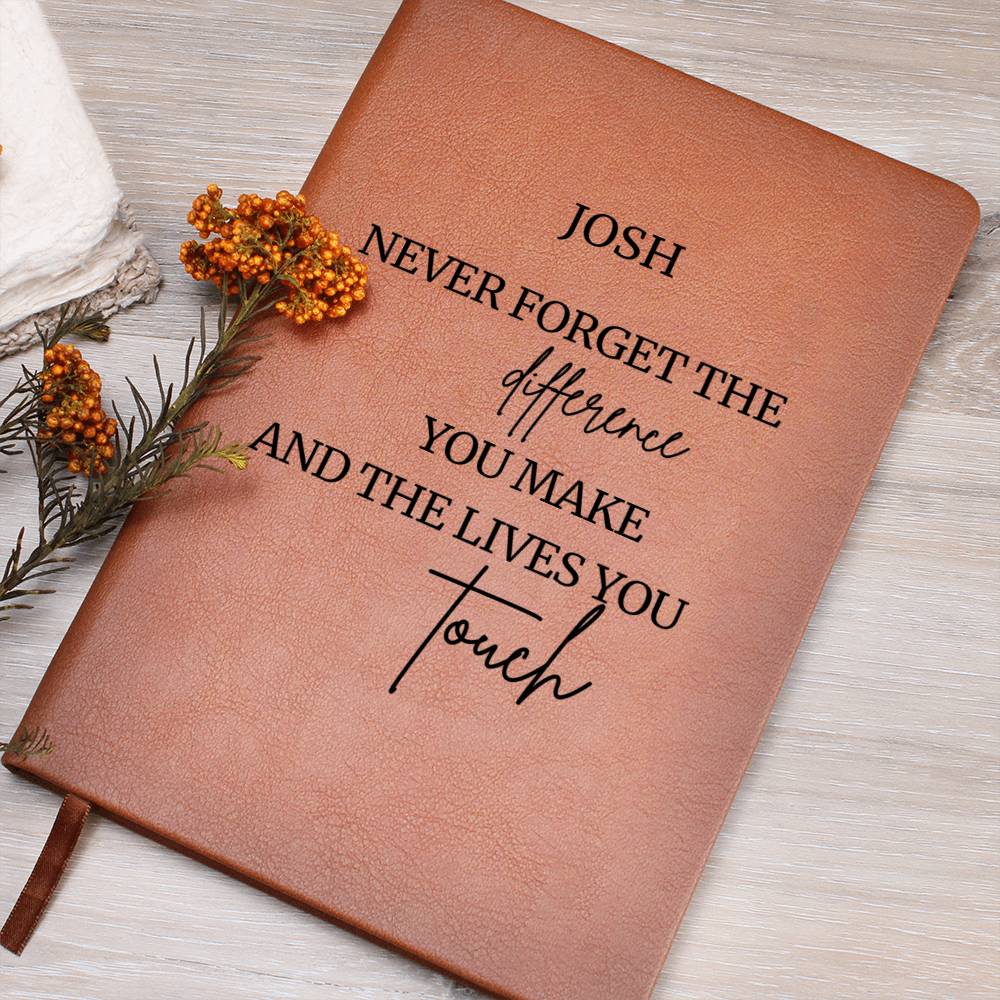 JOSH
NEVER FORGET THE
difference
YOU MAKE
AND THE LIVES YOU
Touch